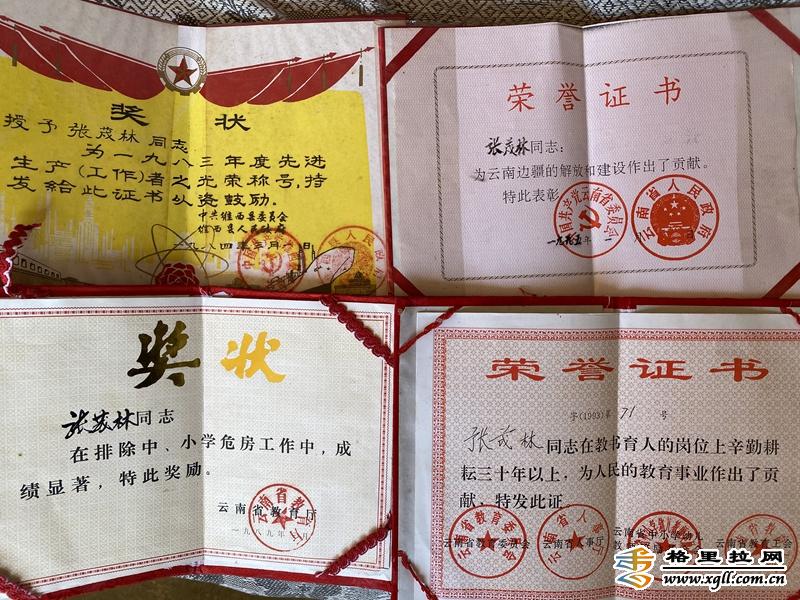 奖状
授予张茂林同志
为一九八三年度先进
生产(工作)者之光荣称号,特
发给此证书以资鼓励。
中共维西县委员会
维西县人民政府
一九八四年三月 日
荣誉证书
张茂林同志:
为云南边疆的解放和建设作出了贡献。
特此表彰
中国共产党云南省委员会
云南省人民政府
一九九五年
奖状
张茂林同志
在排除中、小学危房工作中,成
绩显著,特此奖励。
云南省教育厅
一九八九年 月
荣誉证书
字(1993)第 71 号
张茂林同志在教书育人的岗位上辛勤耕
耘三十年以上,为人民的教育事业作出了贡
献,特发此证
云南省教育委员会 云南省人事厅 云南省教育工会
格里拉网
www.xgll.com.cn